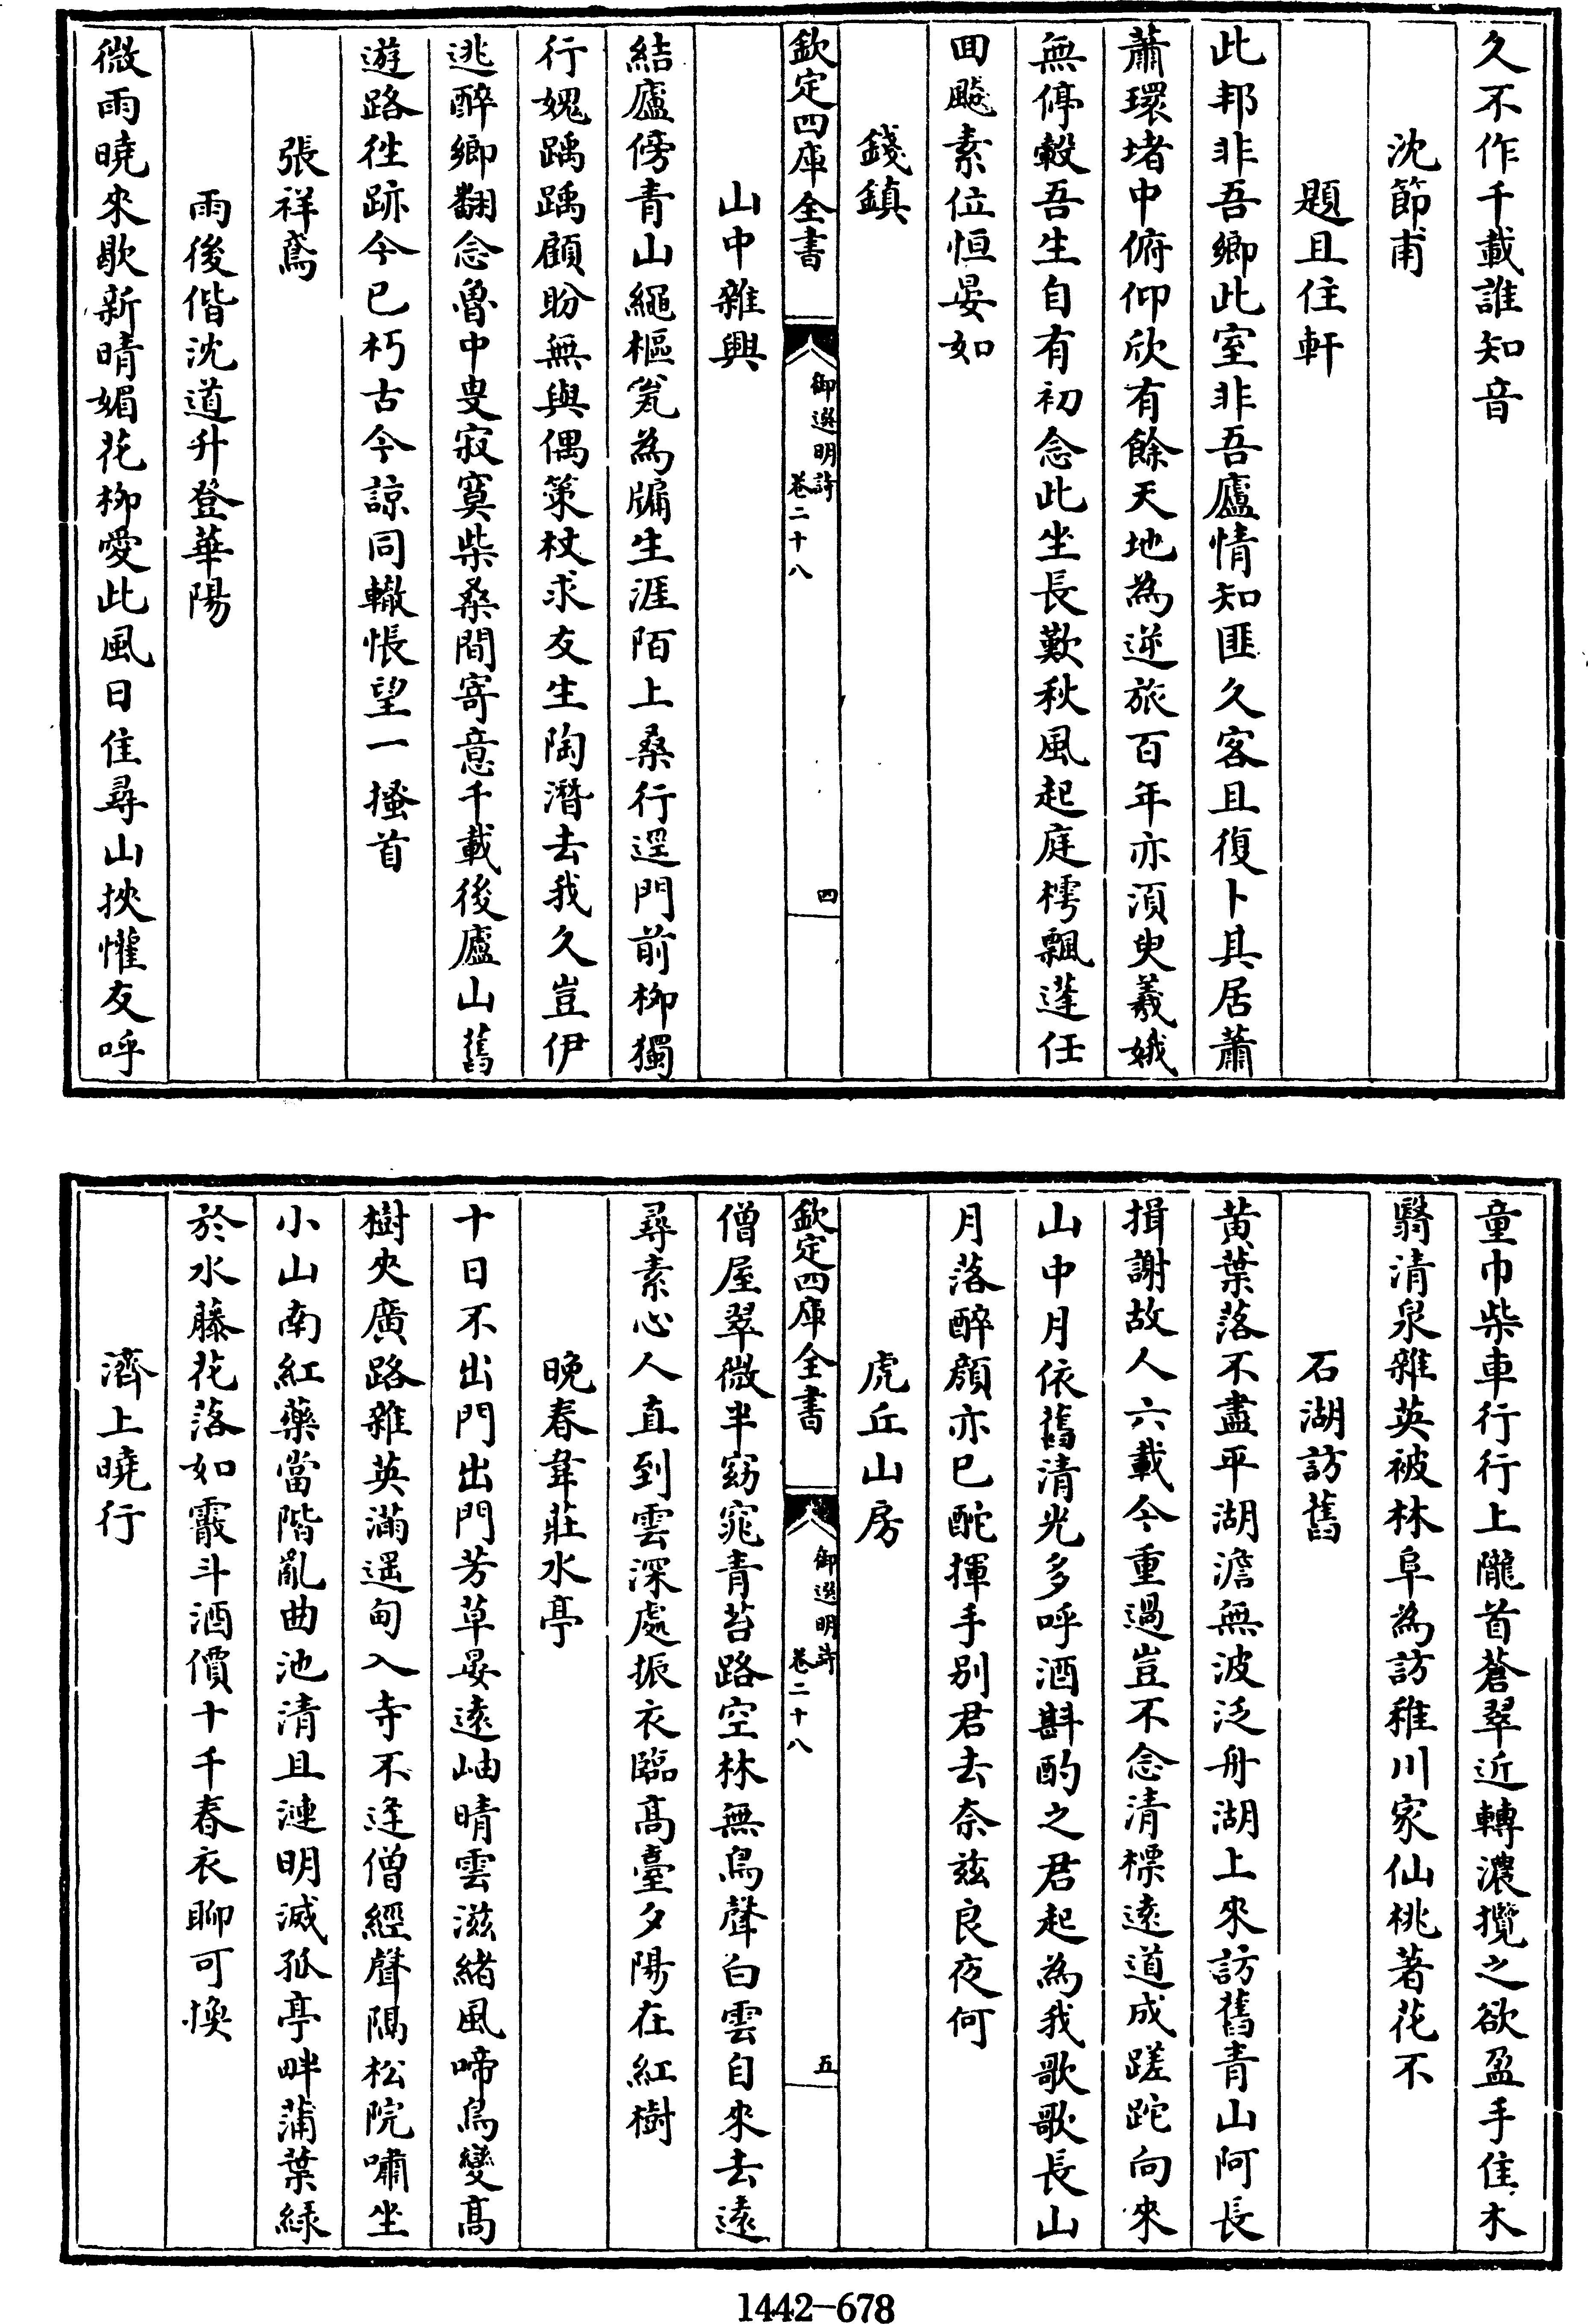 久不作千載誰知音
沈節甫
題且住軒
此邦非吾鄉此室非吾廬情知匪久客且復卜其居蕭
蕭環堵中俯仰欣有餘天地為逆旅百年亦須臾羲娥
無停轂吾生自有初念此坐長歎秋風起庭樗飄蓬任
回飈素位恒晏如
錢鎮
欽定四庫全書
御選明詩
卷二十八
四
山中雜興
結廬傍青山繩樞瓮為牖生涯陌上桑行逕門前柳獨
行媿踽踽顧盼無與偶策杖求友生陶潛去我久豈伊
逃醉鄉翻念魯中叟寂寞柴桑間寄意千載後廬山舊
遊路徃跡今已朽古今諒同轍悵望一搔首
張祥鳶
雨後偕沈道升登華陽
微雨曉來歇新晴媚花柳愛此風日佳尋山挾懽友呼
童巾柴車行行上隴首蒼翠近轉濃攬之欲盈手佳木
翳清泉雜英被林阜為訪稚川家仙桃著花不
石湖訪舊
黄葉落不盡平湖澹無波泛舟湖上來訪舊青山阿長
揖謝故人六載今重過豈不念清標逺道成蹉跎向來
山中月依舊清光多呼酒斟酌之君起為我歌歌長山
月落醉顔亦已酡揮手别君去奈兹良夜何
虎丘山房
欽定四庫全書
御選明詩
卷二十八
五
僧屋翠微半窈窕青苔路空林無鳥聲白雲自來去逺
尋素心人直到雲深處振衣臨髙臺夕陽在紅樹
晚春韋莊水亭
十日不出門出門芳草晏逺岫晴雲滋緒風啼鳥變髙
樹夾廣路雜英滿遥甸入寺不逢僧經聲隔松院嘯坐
小山南紅藥當階亂曲池清且漣明滅孤亭畔蒲葉緑
於水藤花落如霰斗酒價十千春衣聊可换
濟上曉行
1442-678